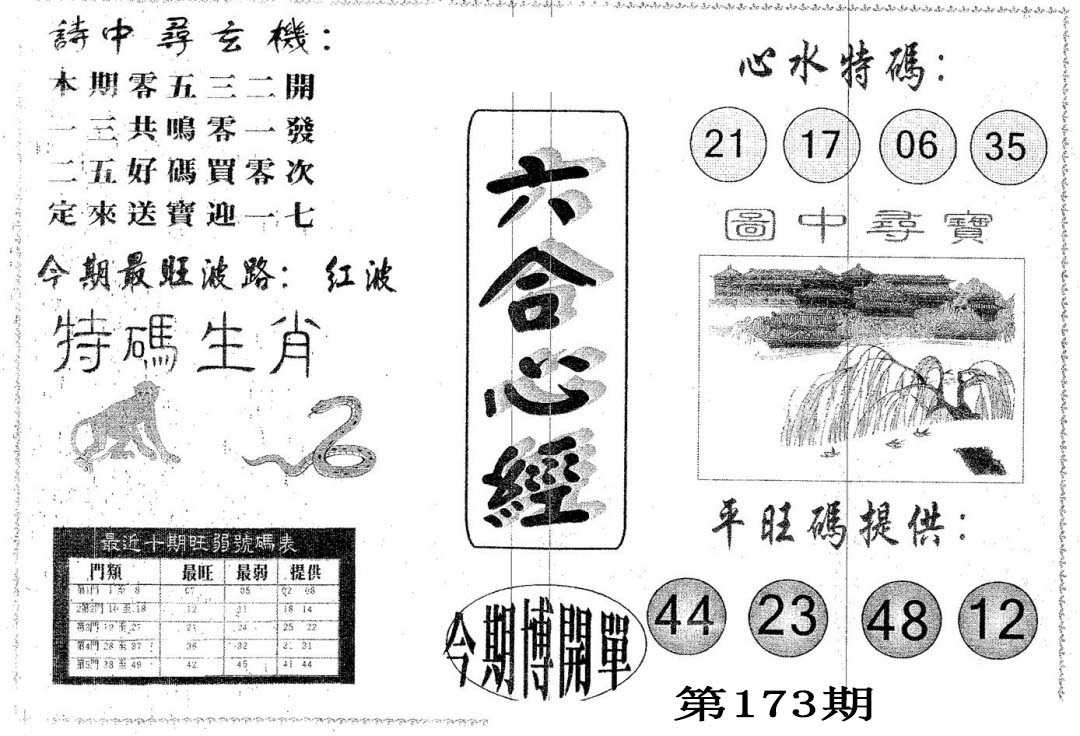 詩中尋玄機：
本期零五三二開
一三共鳴零一發
二五好碼買零次
定來送寶迎一七
今期最旺波路：紅波
特碼生肖
最近十期旺弱號碼表
門類 最旺 最弱 提供
第1門 1至8 07 05 02 08
12 18 14
第3門 25 22
第4門 28至37 36 32 31
第5門 38至49 42 45 41 44
六合心經
今期博開單
心水特碼：
21 17 06 35
圖中尋寶
平旺碼提供：
44 23 48 12
第173期